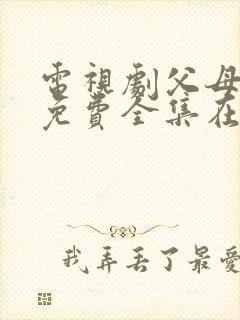 電視劇父母
免費全集在
我弄丢了最愛